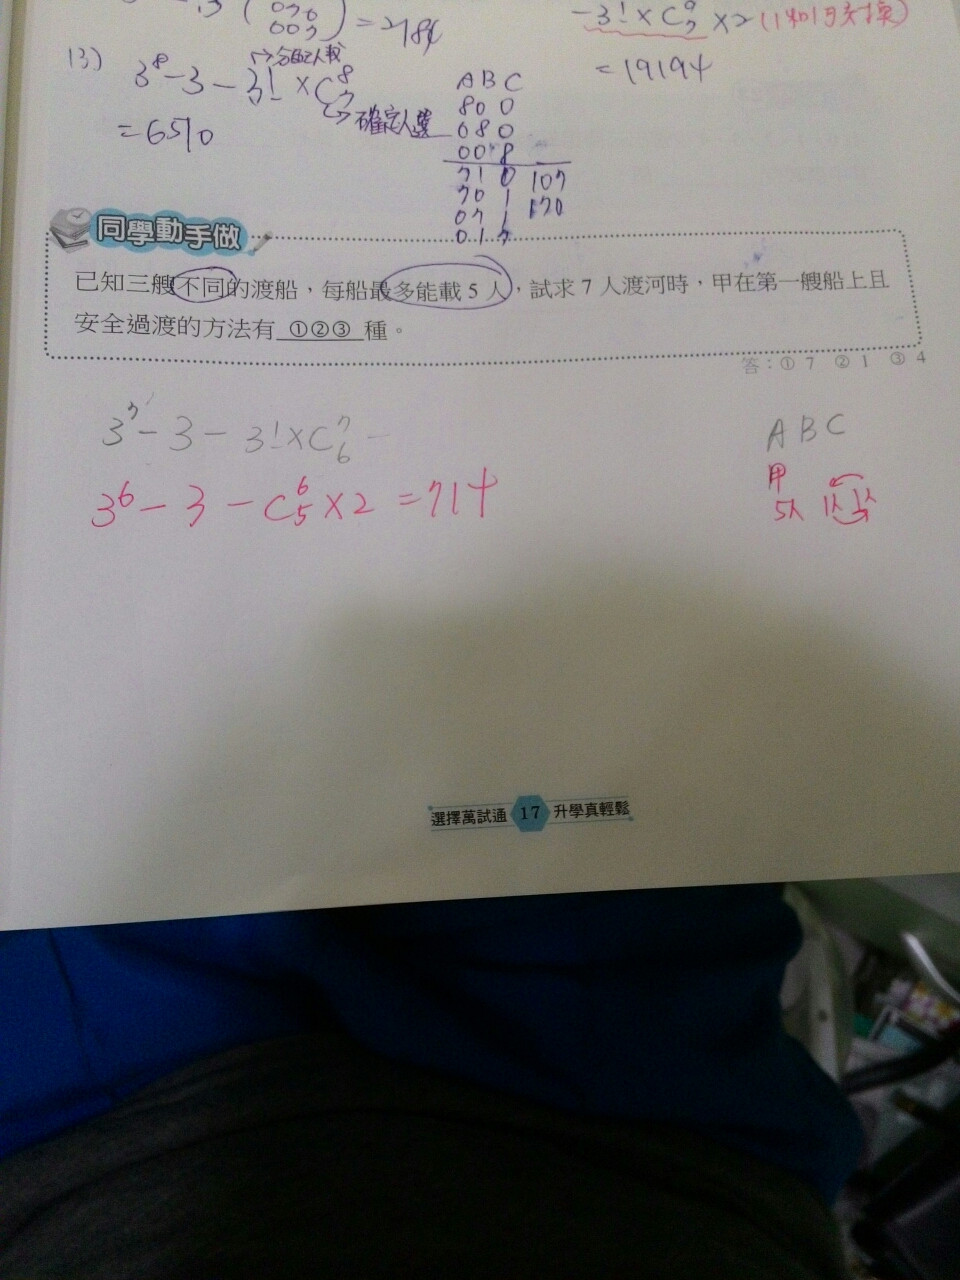 = 2184
-3! × C⁹₇ × 2 (1和1可交換)
= 19194
13)
3⁸ - 3 - 3! × C⁸₇
→ 確定人選
= 6510
A B C
8 0 0
0 8 0
0 0 8
7 1 0 107
7 0 1 170
0 7 1
0 1 7
同學動手做
已知三艘不同的渡船，每船最多能載 5 人，試求 7 人渡河時，甲在第一艘船上且
安全過渡的方法有 ①②③ 種。
答：① 7 ② 1 ③ 4
3⁷ - 3 - 3! × C⁷₆ -
A B C
3⁶ - 3 - C⁶₅ × 2 = 714
甲
5人 1人 1人
選擇萬試通 17 升學真輕鬆